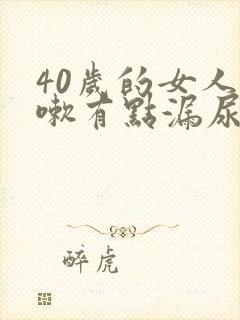 40歲的女人
嗽有點漏尿
醉虎